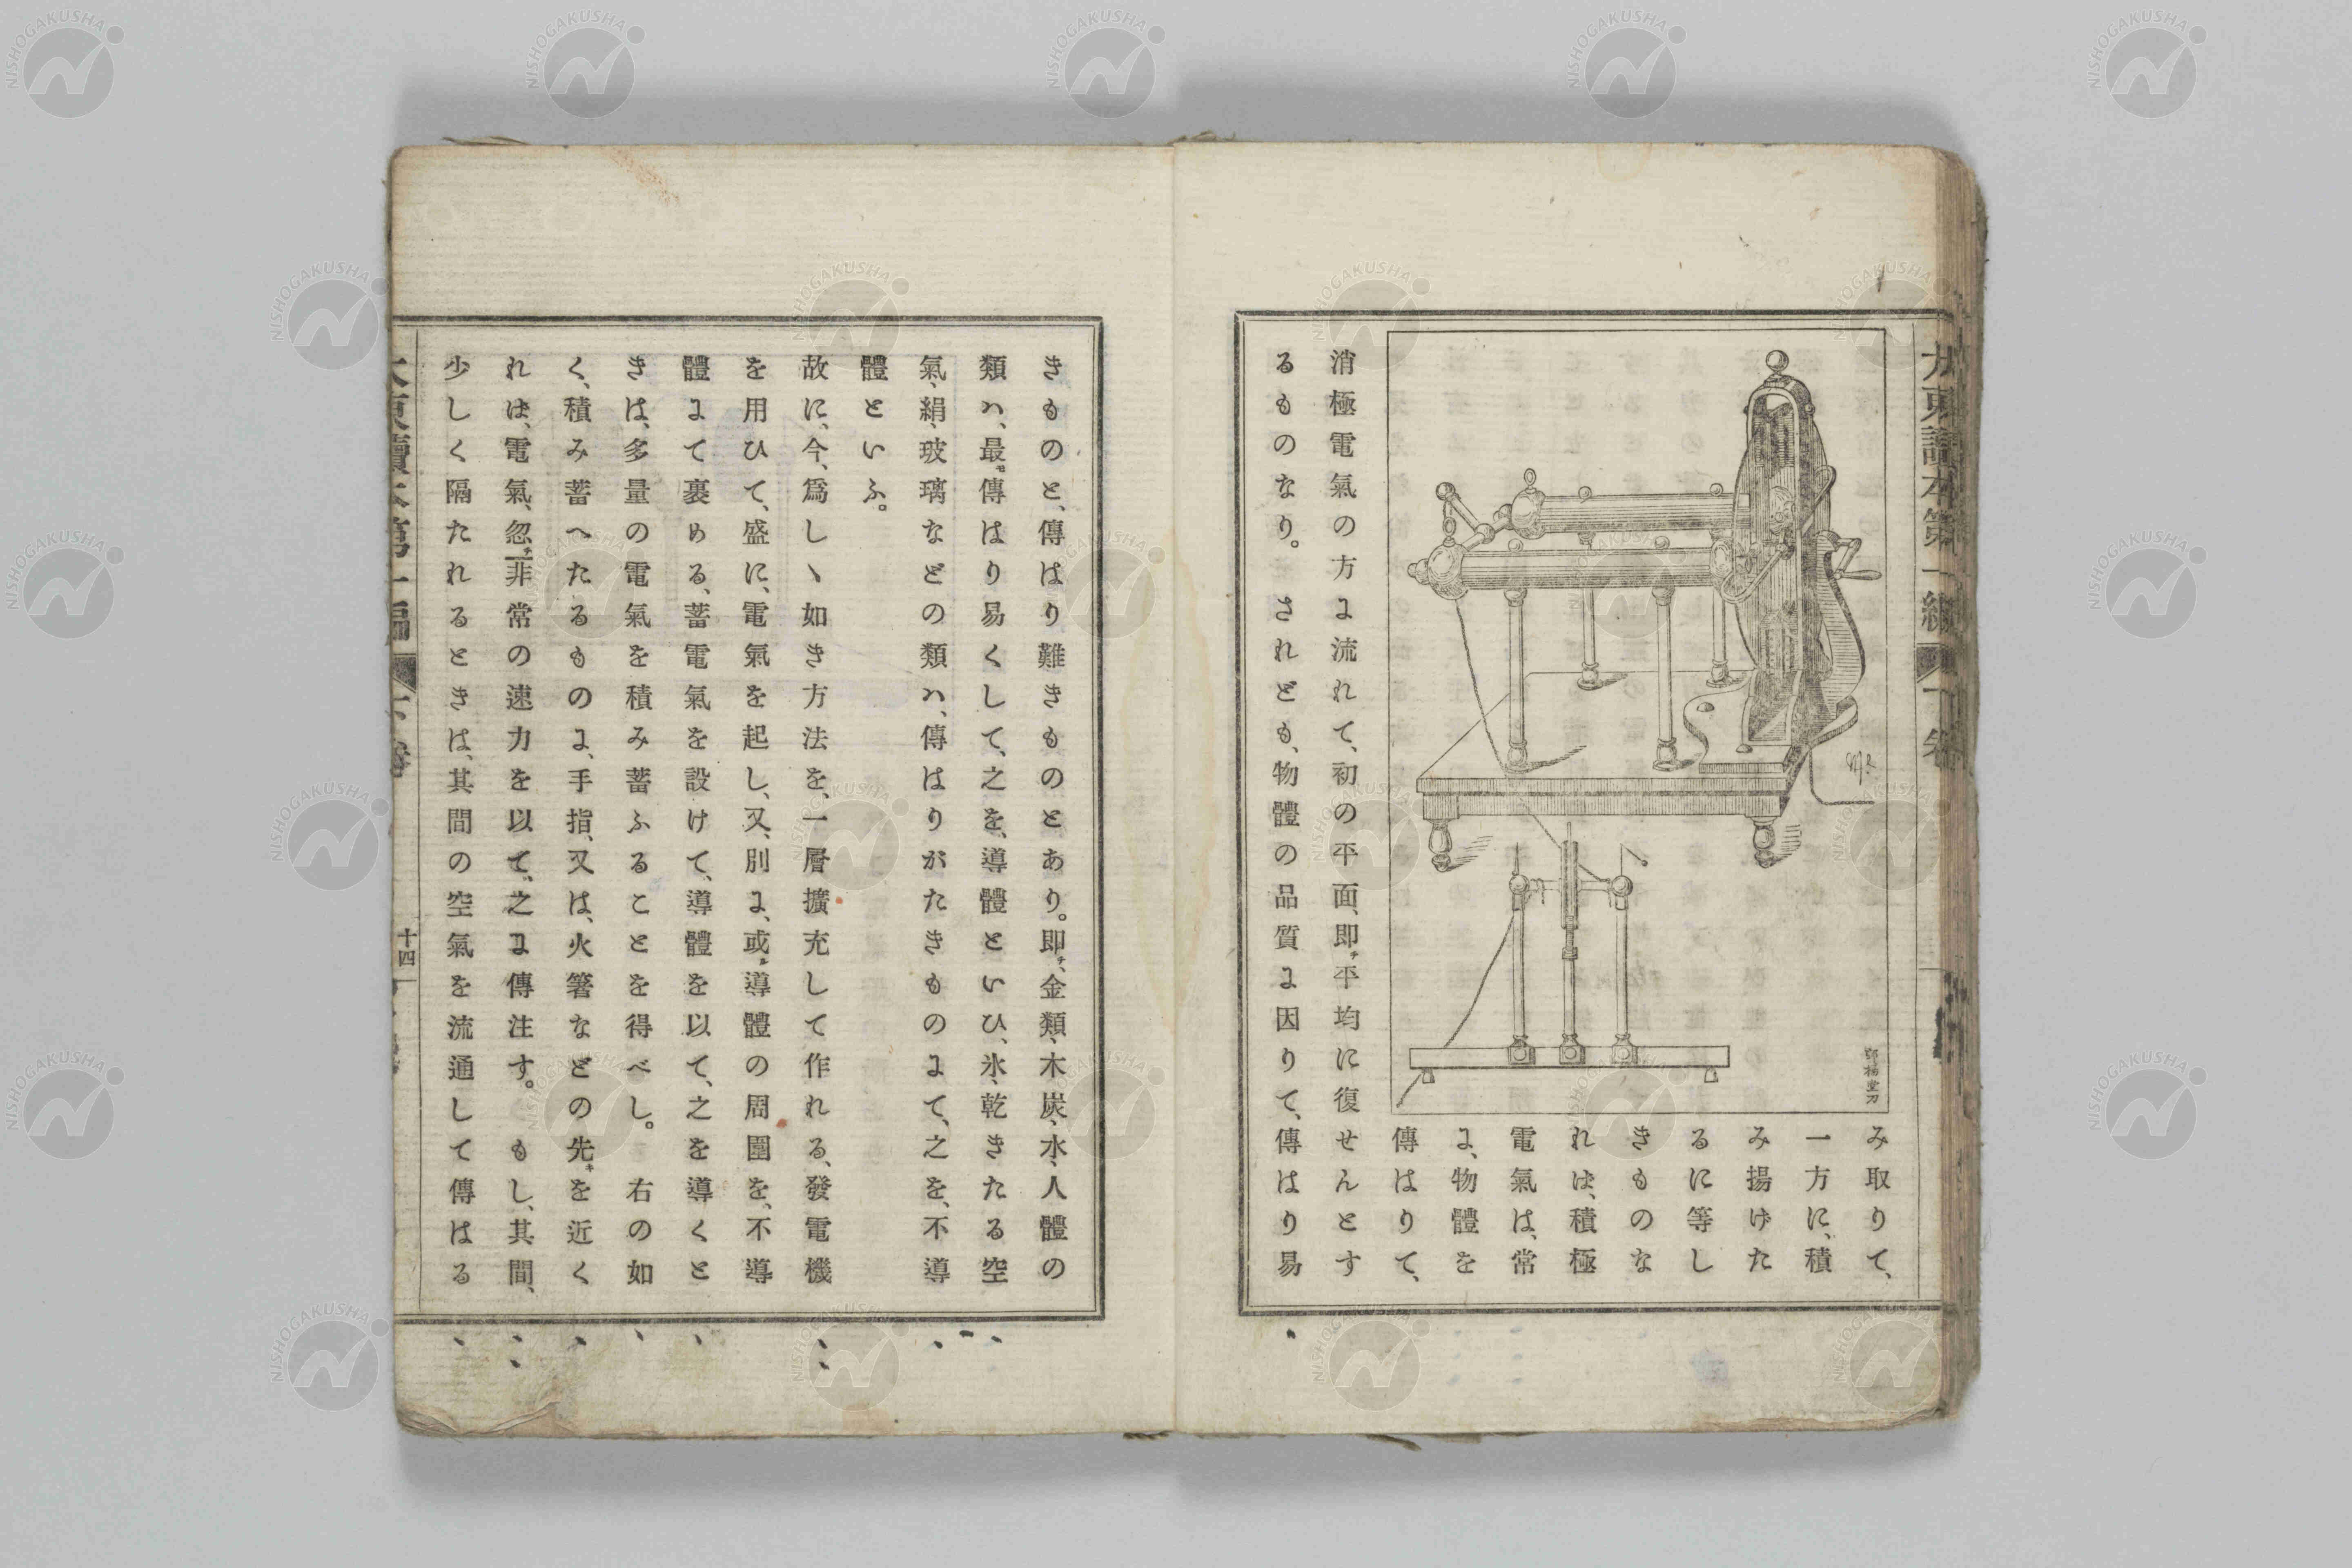 み取りて、
一方に、積
み揚げた
るに等し
きものな
れば、積極
電氣は、常
に、物體を
傳はりて、
消極電氣の方に流れて、初の平面、即チ平均に復せんとす
るものなり。されども、物體の品質に因りて、傳はり易
きものと、傳はり難きものとあり。即チ、金類、木炭、水、人體の
類ハ、最モ傳はり易くして、之を、導體といひ、氷、乾きたる空
氣、絹、玻璃などの類ハ、傳はりがたきものにて、之を、不導
體といふ。
故に、今、爲しゝ如き方法を、一層擴充して作れる、發電機
を用ひて、盛に、電氣を起し、又、別に、或ル導體の周圍を、不導
體にて裹める、蓄電氣を設けて、導體を以て、之を導くと
きは、多量の電氣を積み蓄ふることを得べし。右の如
く、積み蓄へたるものに、手指、又は、火箸などの先キを近く
れば、電氣、忽チ非常の速力を以て、之に傳注す。もし、其間、
少しく隔たれるときは、其間の空氣を流通して傳はる
十四
NISHOGAKUSHA